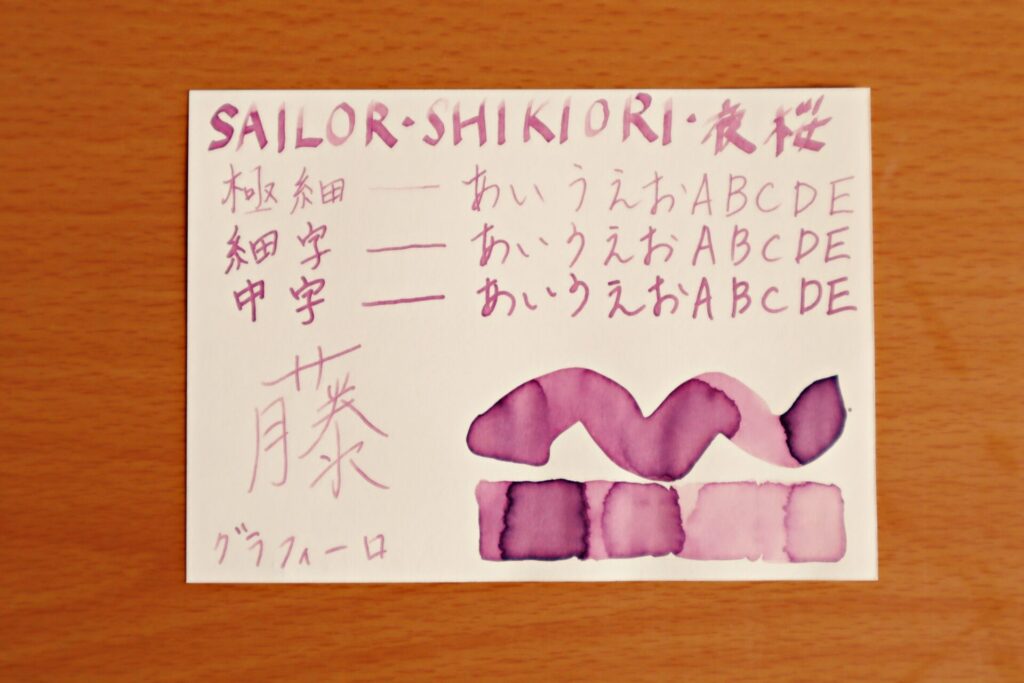 SAILOR・SHIKIORI・夜桜
極細 — あいうえおABCDE
細字 — あいうえおABCDE
中字 — あいうえおABCDE
藤
グラフィーロ